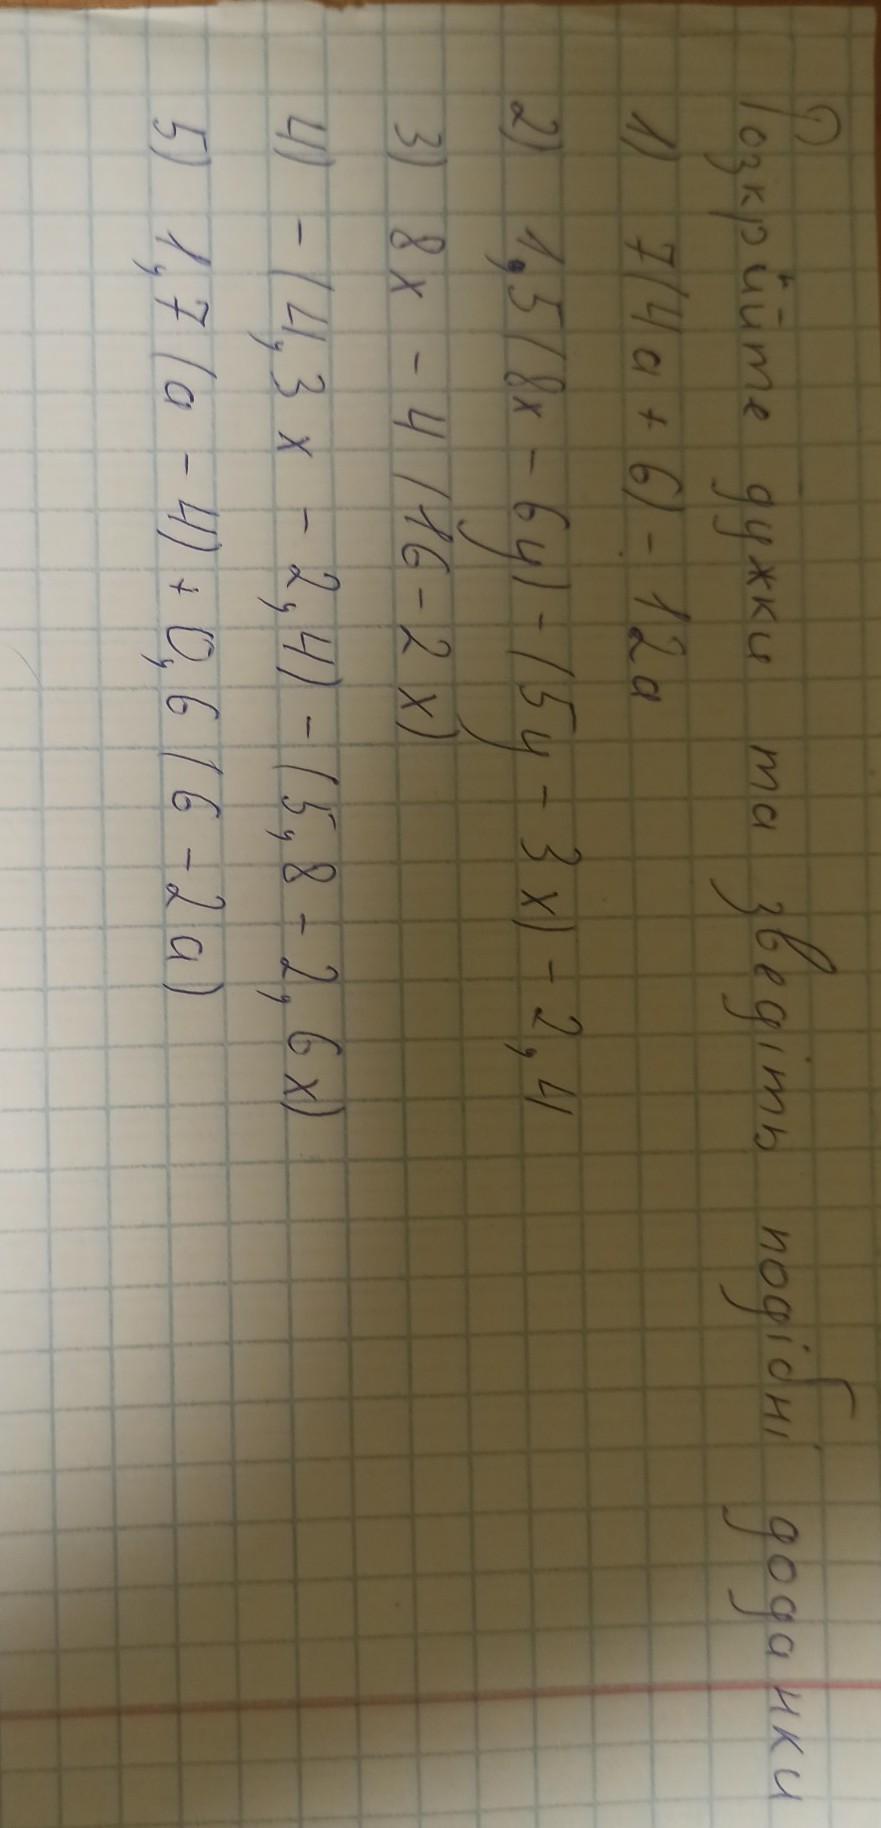 Розкрийте дужки та зведіть подібні доданки
1) 7(4a + 6) - 12a
2) 1,5(8x - 6y) - (5y - 3x) - 2,4
3) 8x - 4(16 - 2x)
4) - (4,3x - 2,4) - (5,8 - 2,6x)
5) 1,7(a - 4) + 0,6(6 - 2a)